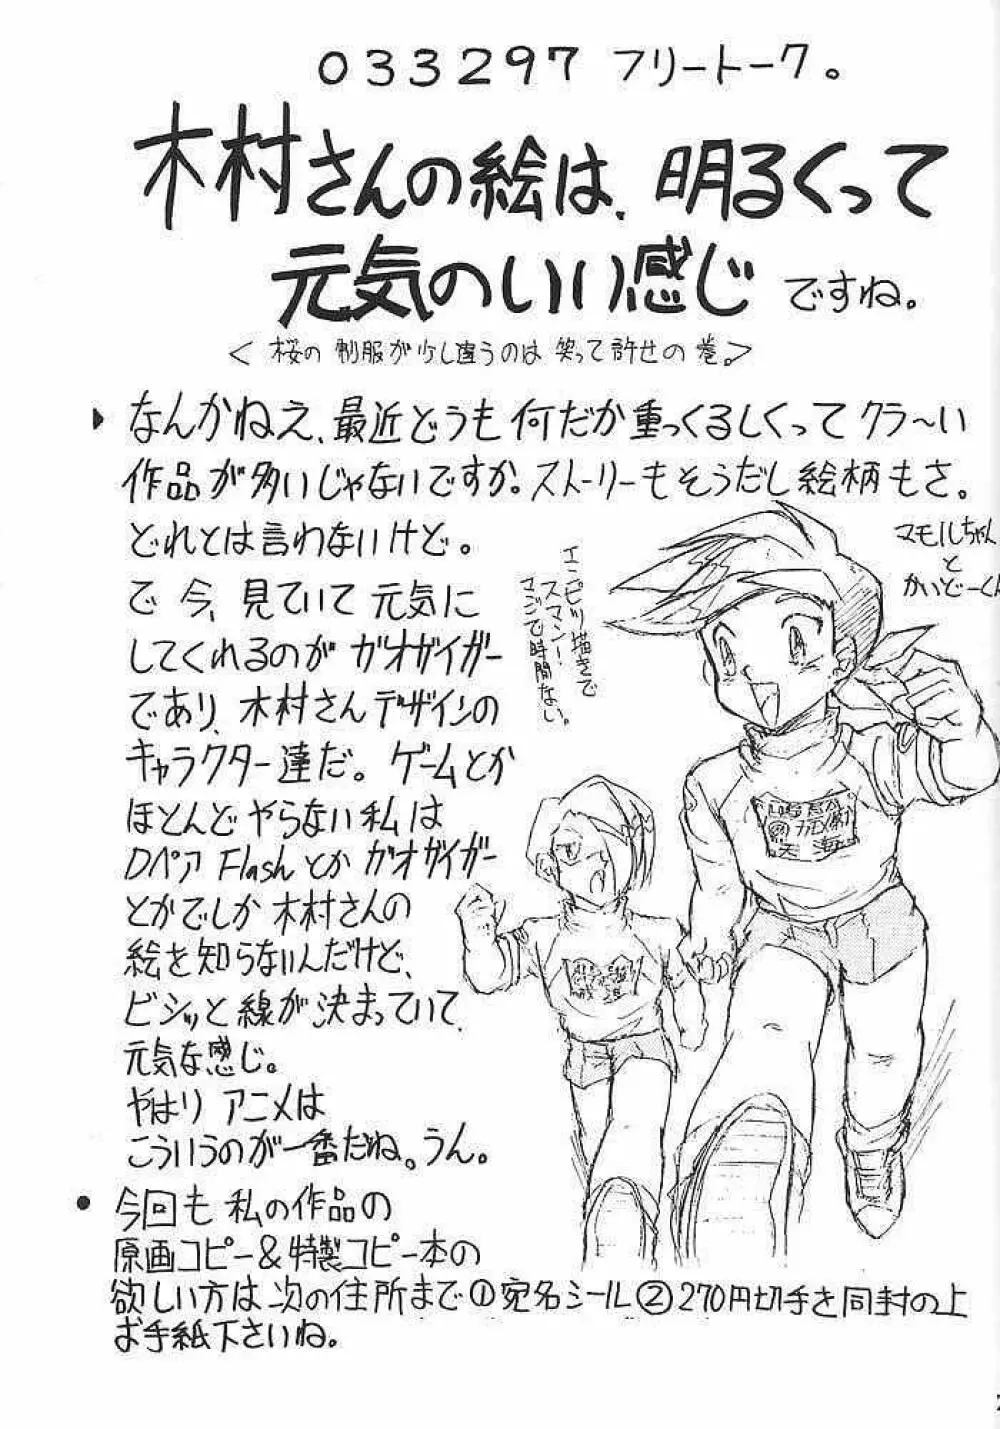 033297 フリートーク。
木村さんの絵は、明るくって
元気のいい感じですね。
＜桜の制服が少し違うのは笑って許せの巻。＞
▶ なんかねえ、最近どうも何だか重っくるしくってクラ〜い
作品が多いじゃないですか。ストーリーもそうだし絵柄もさ。
どれとは言わないけど。
で今、見ていて元気に
してくれるのがガオガイガー
であり、木村さんデザインの
キャラクター達だ。ゲームとか
ほとんどやらない私は
Dペア Flashとかガオガイガー
とかでしか木村さんの
絵を知らないんだけど、
ビシッと線が決まっていて、
元気な感じ。
やはりアニメは
こういうのが一番だね。うん。
エンピツ描きで
スマン!
マジで時間ない。
マモルちゃん
と
かいどーくん
● 今回も私の作品の
原画コピー&特製コピー本の
欲しい方は次の住所まで①宛名シール②270円切手を同封の上
お手紙下さいね。